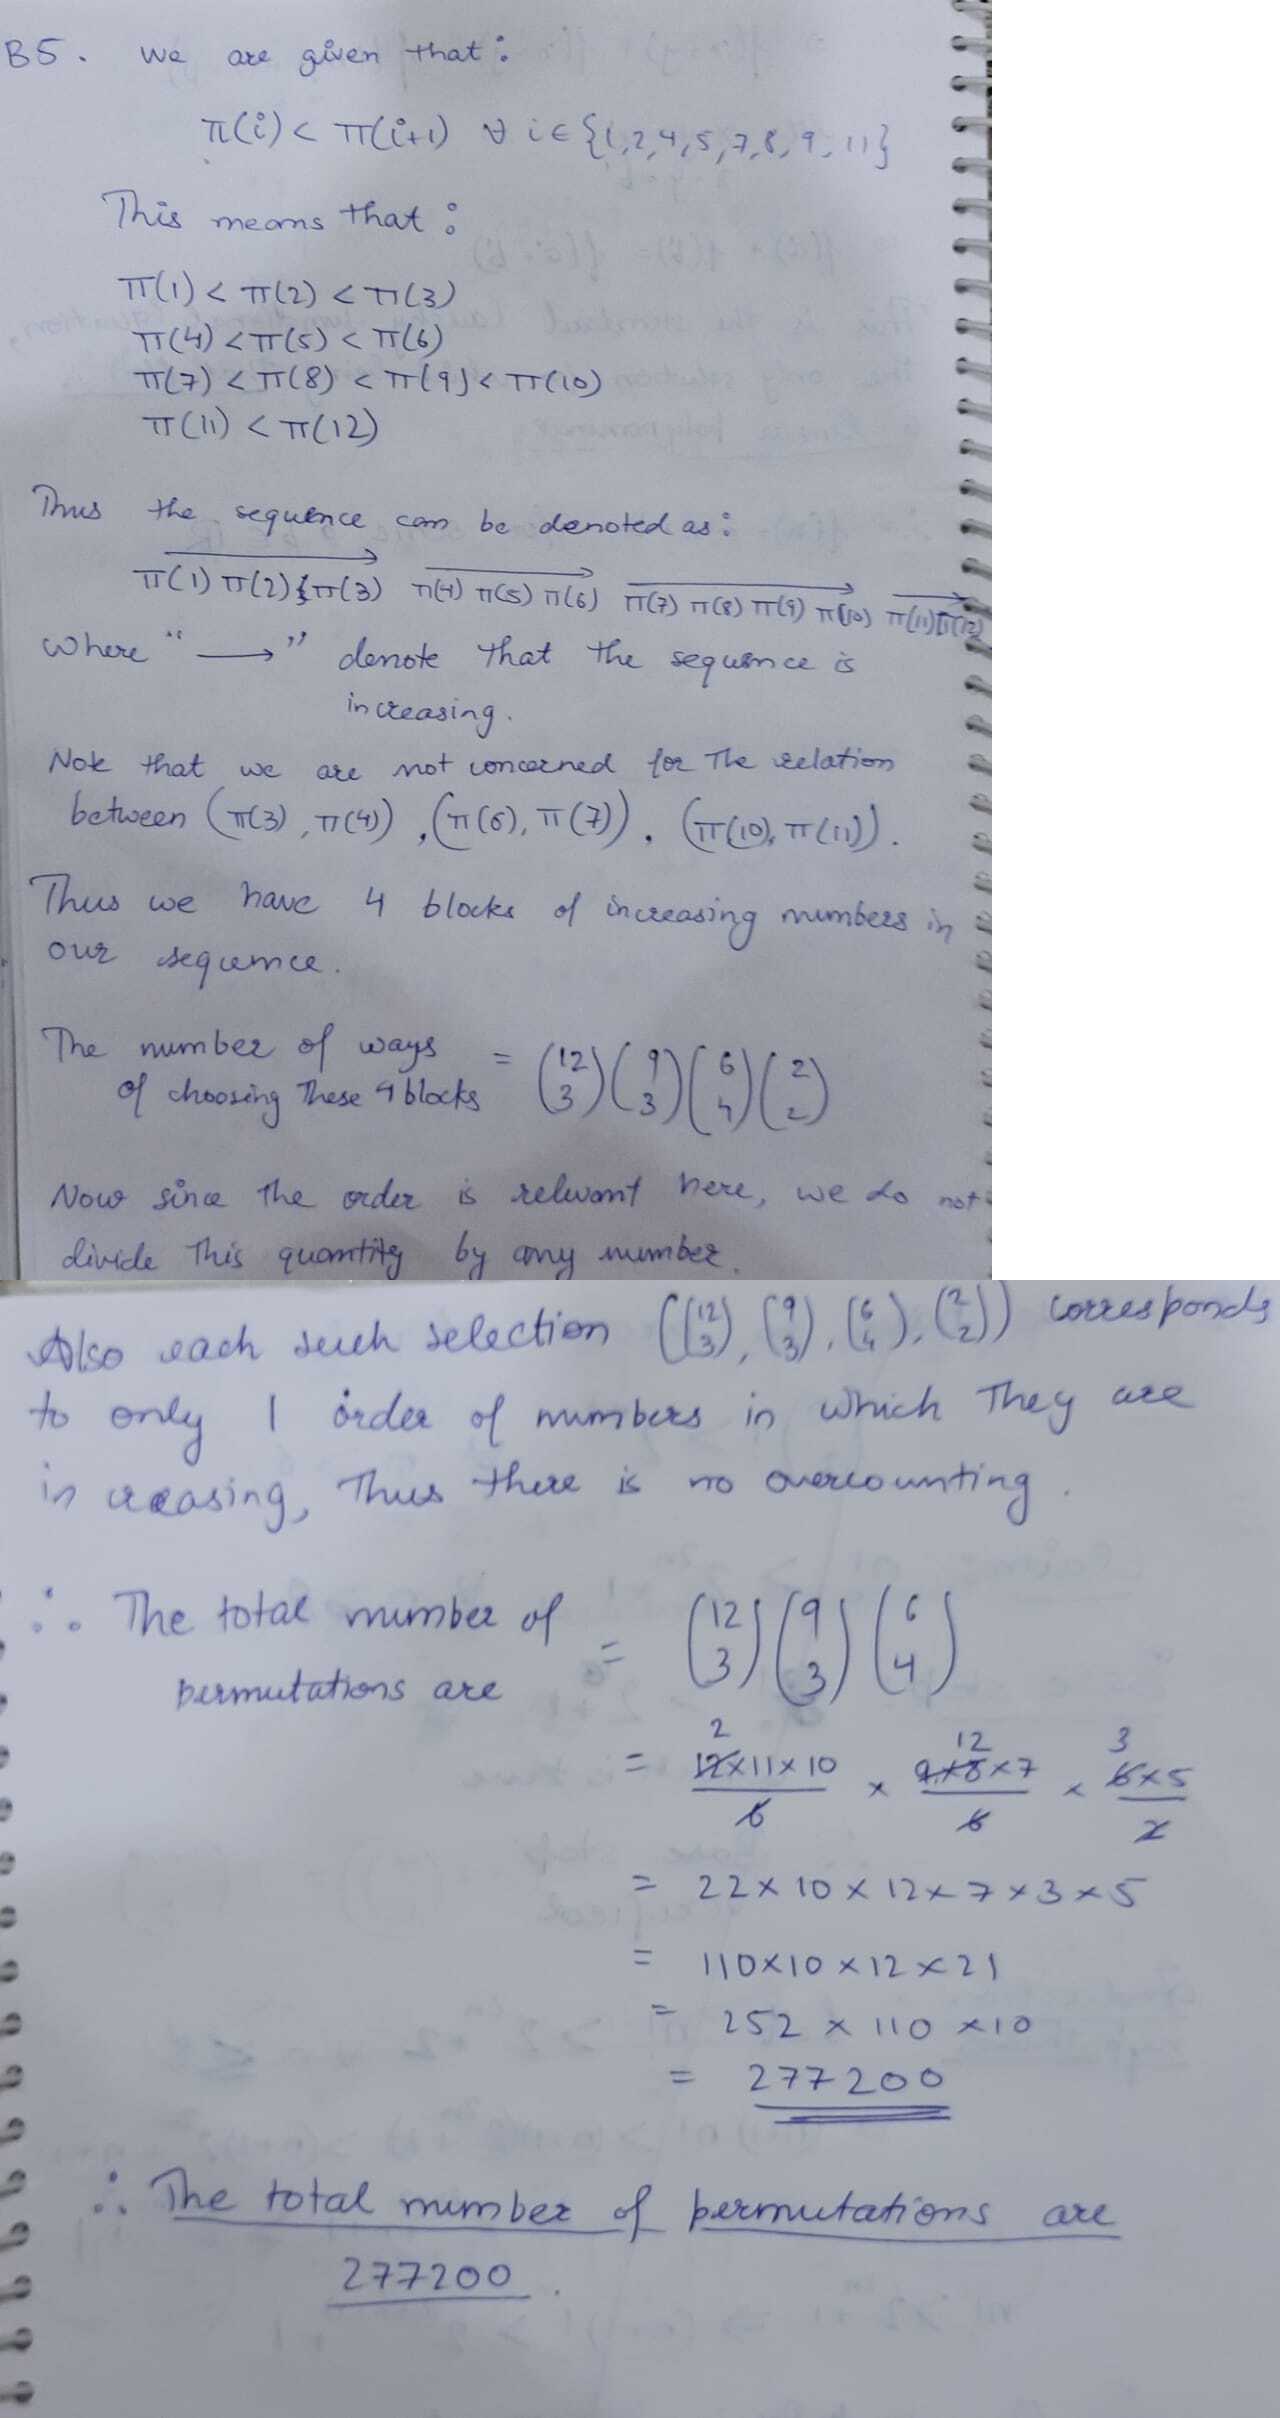 B5. We are given that:
π(i) < π(i+1) ∀ i ∈ {1,2,4,5,7,8,9,11}
This means that:
π(1) < π(2) < π(3)
π(4) < π(5) < π(6)
π(7) < π(8) < π(9) < π(10)
π(11) < π(12)
Thus the sequence can be denoted as:
π(1) π(2) π(3) π(4) π(5) π(6) π(7) π(8) π(9) π(10) π(11) π(12)
where "⟶" denote that the sequence is
increasing.
Note that we are not concerned for the relation
between (π(3), π(4)), (π(6), π(7)), (π(10), π(11)).
Thus we have 4 blocks of increasing numbers in
our sequence.
The number of ways
of choosing these 4 blocks = (12 3)(9 3)(6 4)(2 2)
Now since the order is relevant here, we do not
divide this quantity by any number.
Also each such selection ((12 3), (9 3), (6 4), (2 2)) corresponds
to only 1 order of numbers in which they are
increasing, Thus there is no overcounting.
∴ The total number of
permutations are = (12 3)(9 3)(6 4)
= 12×11×10/6 × 9×8×7/6 × 6×5/2
= 22×10×12×7×3×5
= 110×10×12×21
= 252×110×10
= 277200
∴ The total number of permutations are
277200.